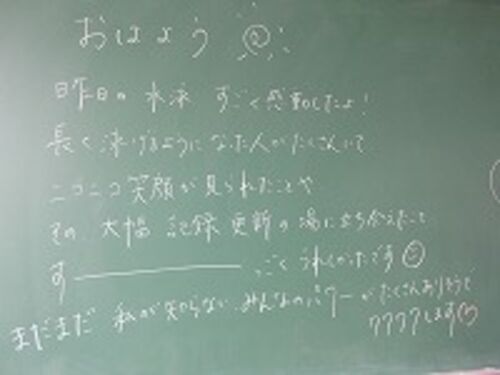 おはよう
昨日の 水泳 すごく感動したよ！
長く泳げるようになった人がたくさんいて
ニコニコ笑顔が見られたことや
その 大幅 記録 更新の場に立ち会えたこと
す――――っごく うれしかったです
まだまだ 私が知らない みんなのパワーが たくさんありそうで
ワクワクします♡